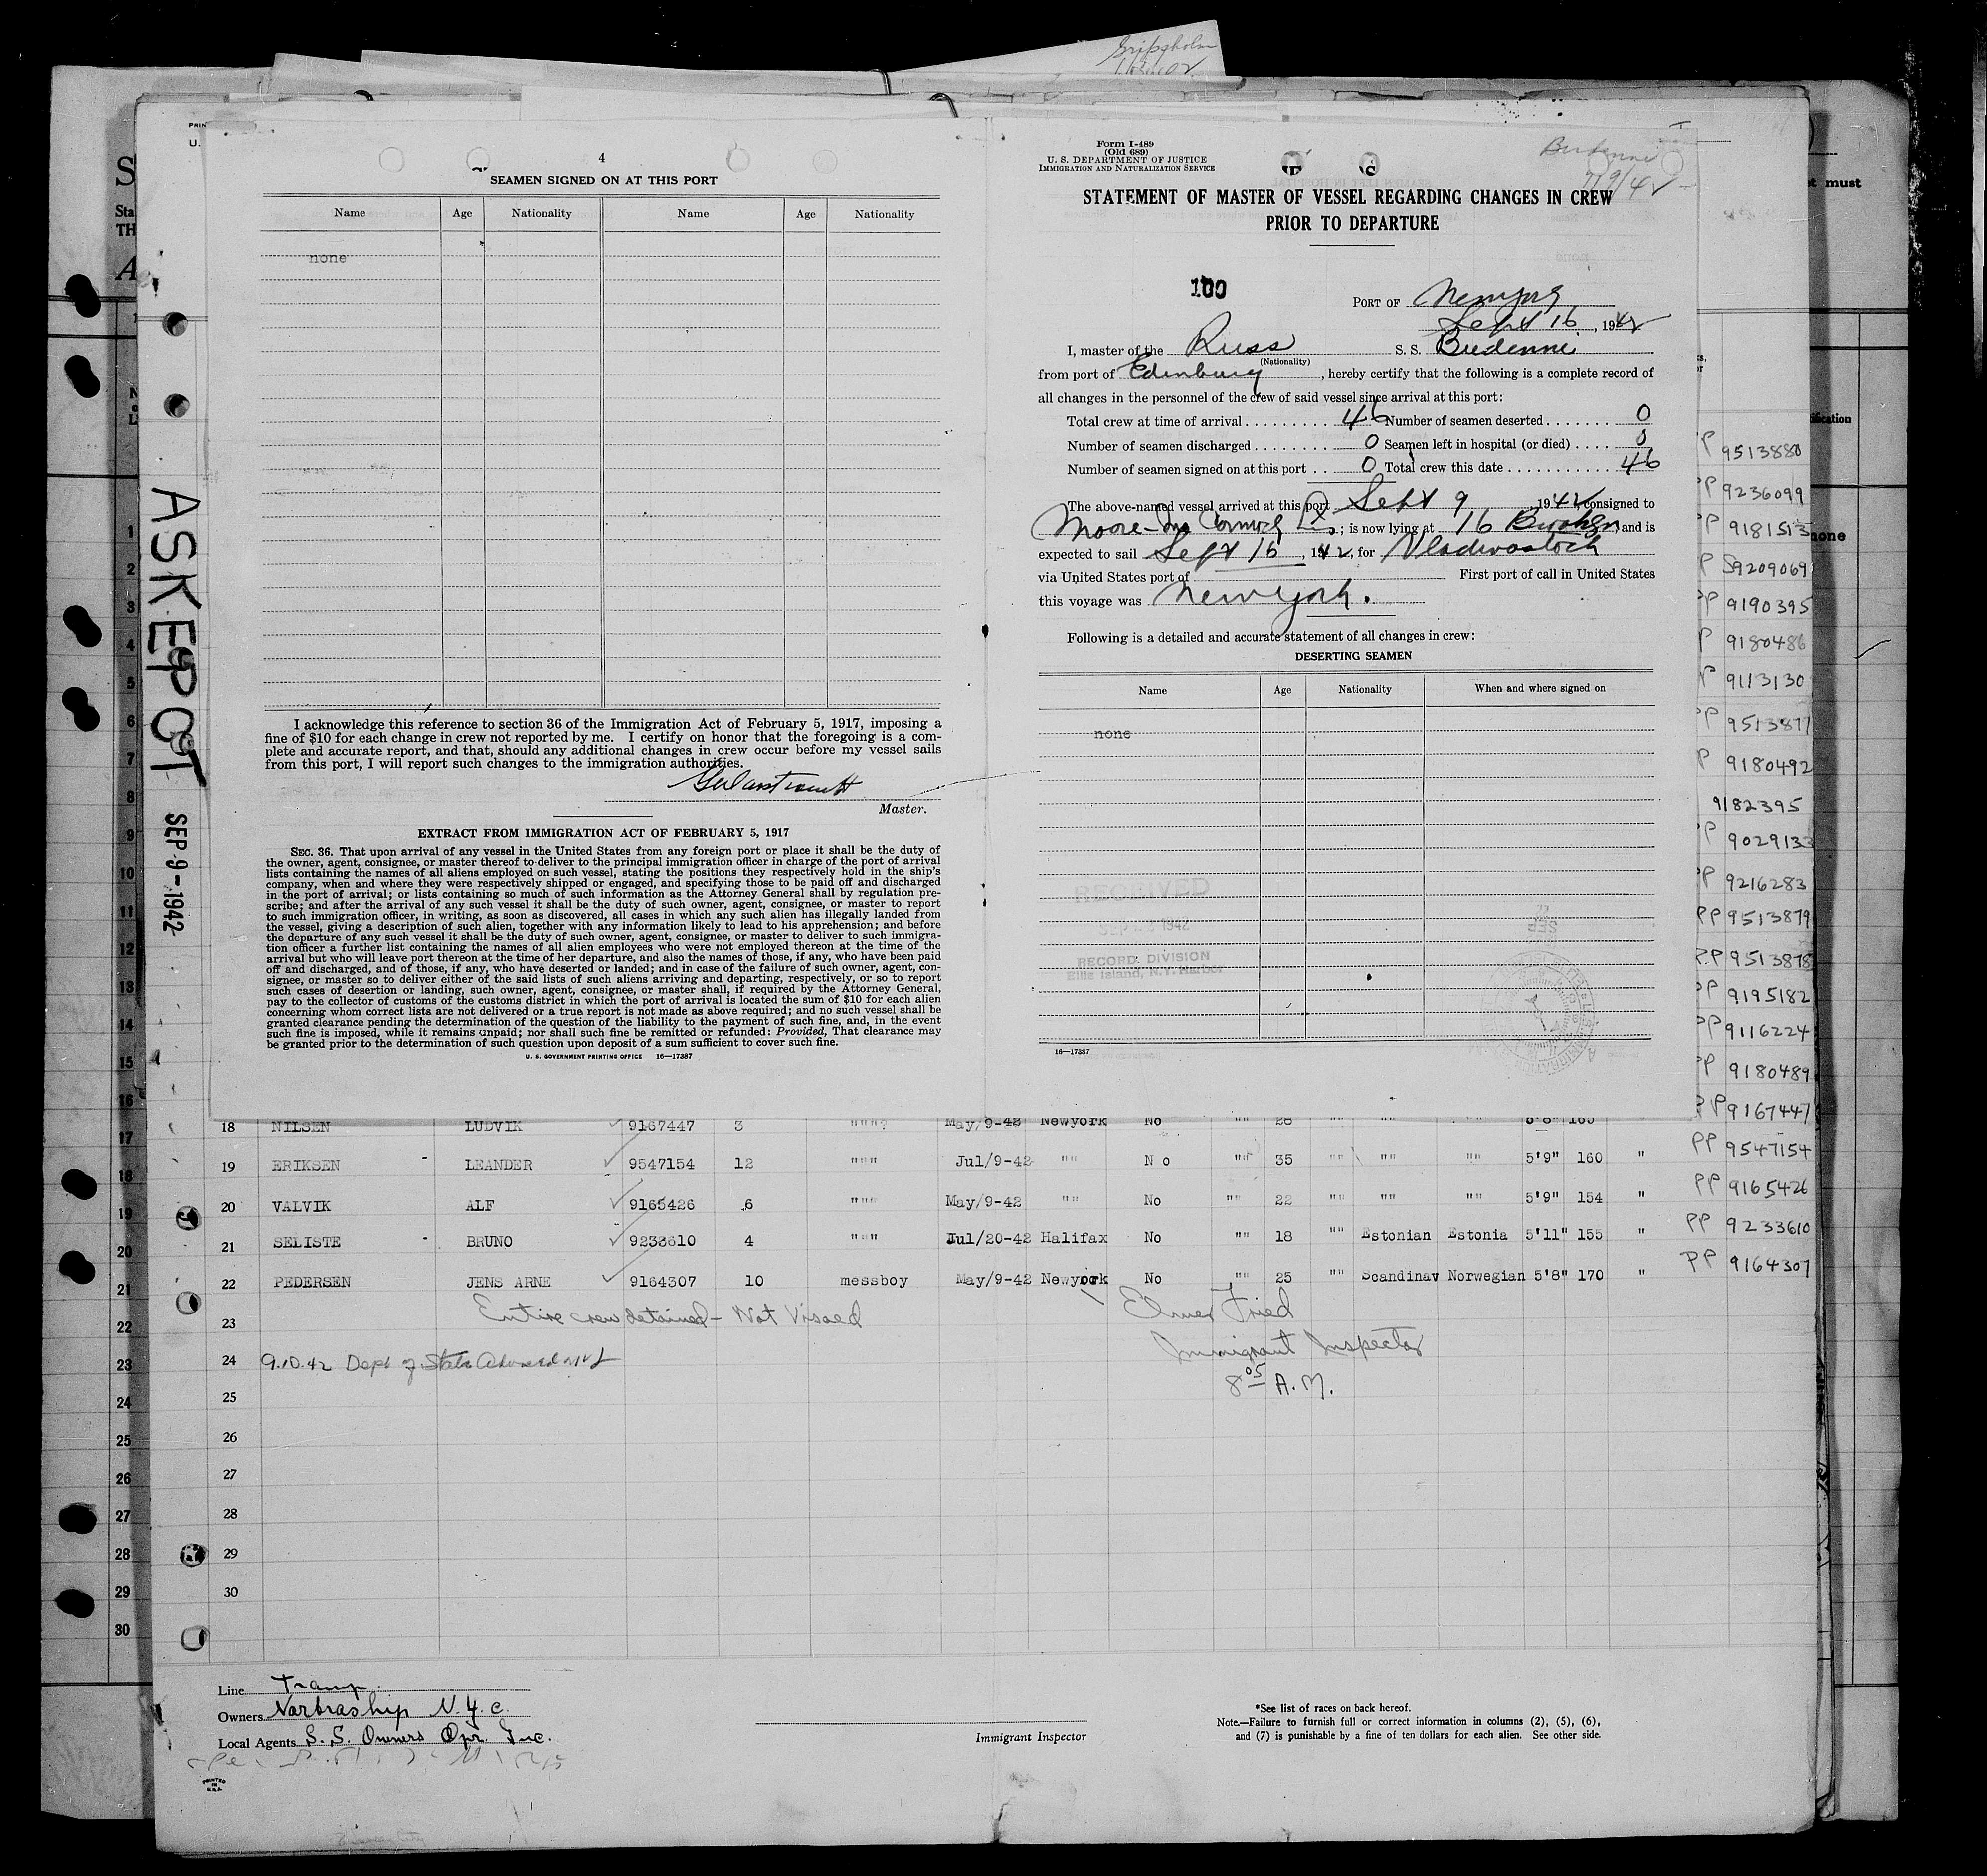 Gripsholm
4
SEAMEN SIGNED ON AT THIS PORT
Name Age Nationality Name Age Nationality
none
I acknowledge this reference to section 36 of the Immigration Act of February 5, 1917, imposing a
fine of $10 for each change in crew not reported by me. I certify on honor that the foregoing is a com-
plete and accurate report, and that, should any additional changes in crew occur before my vessel sails
from this port, I will report such changes to the immigration authorities.
Master.
EXTRACT FROM IMMIGRATION ACT OF FEBRUARY 5, 1917
SEC. 36. That upon arrival of any vessel in the United States from any foreign port or place it shall be the duty of
the owner, agent, consignee, or master thereof to deliver to the principal immigration officer in charge of the port of arrival
lists containing the names of all aliens employed on such vessel, stating the positions they respectively hold in the ship's
company, when and where they were respectively shipped or engaged, and specifying those to be paid off and discharged
in the port of arrival; or lists containing so much of such information as the Attorney General shall by regulation pre-
scribe; and after the arrival of any such vessel it shall be the duty of such owner, agent, consignee, or master to report
to such immigration officer, in writing, as soon as discovered, all cases in which any such alien has illegally landed from
the vessel, giving a description of such alien, together with any information likely to lead to his apprehension; and before
the departure of any such vessel it shall be the duty of such owner, agent, consignee, or master to deliver to such immigra-
tion officer a further list containing the names of all alien employees who were not employed thereon at the time of the
arrival but who will leave port thereon at the time of her departure, and also the names of those, if any, who have been paid
off and discharged, and of those, if any, who have deserted or landed; and in case of the failure of such owner, agent, con-
signee, or master so to deliver either of the said lists of such aliens arriving and departing, respectively, or so to report
such cases of desertion or landing, such owner, agent, consignee, or master shall, if required by the Attorney General,
pay to the collector of customs of the customs district in which the port of arrival is located the sum of $10 for each alien
concerning whom correct lists are not delivered or a true report is not made as above required; and no such vessel shall be
granted clearance pending the determination of the question of the liability to the payment of such fine, and, in the event
such fine is imposed, while it remains unpaid; nor shall such fine be remitted or refunded: Provided, That clearance may
be granted prior to the determination of such question upon deposit of a sum sufficient to cover such fine.
U. S. GOVERNMENT PRINTING OFFICE 16—17387
Form I-489
(Old 689)
U. S. DEPARTMENT OF JUSTICE
IMMIGRATION AND NATURALIZATION SERVICE
Budenni
9/9/42
STATEMENT OF MASTER OF VESSEL REGARDING CHANGES IN CREW
PRIOR TO DEPARTURE
100
PORT OF Newyork
Sept 16, 1942
I, master of the Russ S. S. Budenni
(Nationality)
from port of Edenburg, hereby certify that the following is a complete record of
all changes in the personnel of the crew of said vessel since arrival at this port:
Total crew at time of arrival 46 Number of seamen deserted 0
Number of seamen discharged 0 Seamen left in hospital (or died) 0
Number of seamen signed on at this port 0 Total crew this date 46
The above-named vessel arrived at this port Sept 9 1942, consigned to
Moore-McCormack; is now lying at 16 Brooklyn, and is
expected to sail Sept 16, 1942, for Vladivostock
via United States port of First port of call in United States
this voyage was New York.
Following is a detailed and accurate statement of all changes in crew:
DESERTING SEAMEN
Name Age Nationality When and where signed on
none
RECEIVED
SEP 1942
RECORD DIVISION
Ellis Island, N.Y. Harbor
16—17387
ASKEPOT SEP 9-1942
must
none
PP 9513880
PP 9236099
PP 9181513
P S9209069
PP 9190395
P 9180486
P 9113130
PP 9513877
P 9180492
9182395
PP 9029133
PP 9216283
PP 9513879
PP 9513878
PP 9195182
PP 9116224
PP 9180489
PP 9167447
18 NILSEN LUDVIK 9167447 3 """" May/9-42 Newyork No "" 28
19 ERIKSEN - LEANDER 9547154 12 """ Jul/9-42 "" No "" 35 "" "" "" 5'9" 160 " PP 9547154
20 VALVIK ALF 9165426 6 """ May/9-42 "" No "" 22 "" "" "" 5'9" 154 " PP 9165426
21 SELISTE - BRUNO 9233610 4 """ Jul/20-42 Halifax No "" 18 "" Estonian Estonia 5'11" 155 " PP 9233610
22 PEDERSEN JENS ARNE 9164307 10 messboy May/9-42 Newyork No "" 25 "" Scandinav Norwegian 5'8" 170 " PP 9164307
23 Entire crew detained - Not Visaed Elmer Fried
Immigrant Inspector
24 9.10.42 Dept of State
8 05 A.M.
25
26
27
28
29
30
1
2
3
4
5
6
7
8
9
10
11
12
13
14
15
16
17
18
19
20
21
22
23
24
25
26
27
28
29
30
Line Tramp.
Owners Nortraship N.Y.C.
Local Agents S.S. Owners Opr. Inc.
PRINTED
IN
U.S.A.
Immigrant Inspector
*See list of races on back hereof.
Note.—Failure to furnish full or correct information in columns (2), (5), (6),
and (7) is punishable by a fine of ten dollars for each alien. See other side.